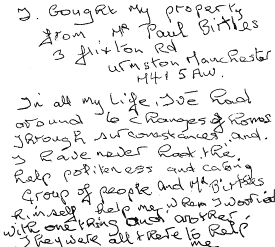 I Bought My property
from Mr Paul Birtles
3 flixton Rd
Urmston Manchester
M41 5AW.
In all my life, I've had
around 6 changes of homes
through circumstances, and
I have never had the
help politeness and caring
Group of people and Mr Birtles
himself help me when I worried
with one thing and another.
They were all there to help
me